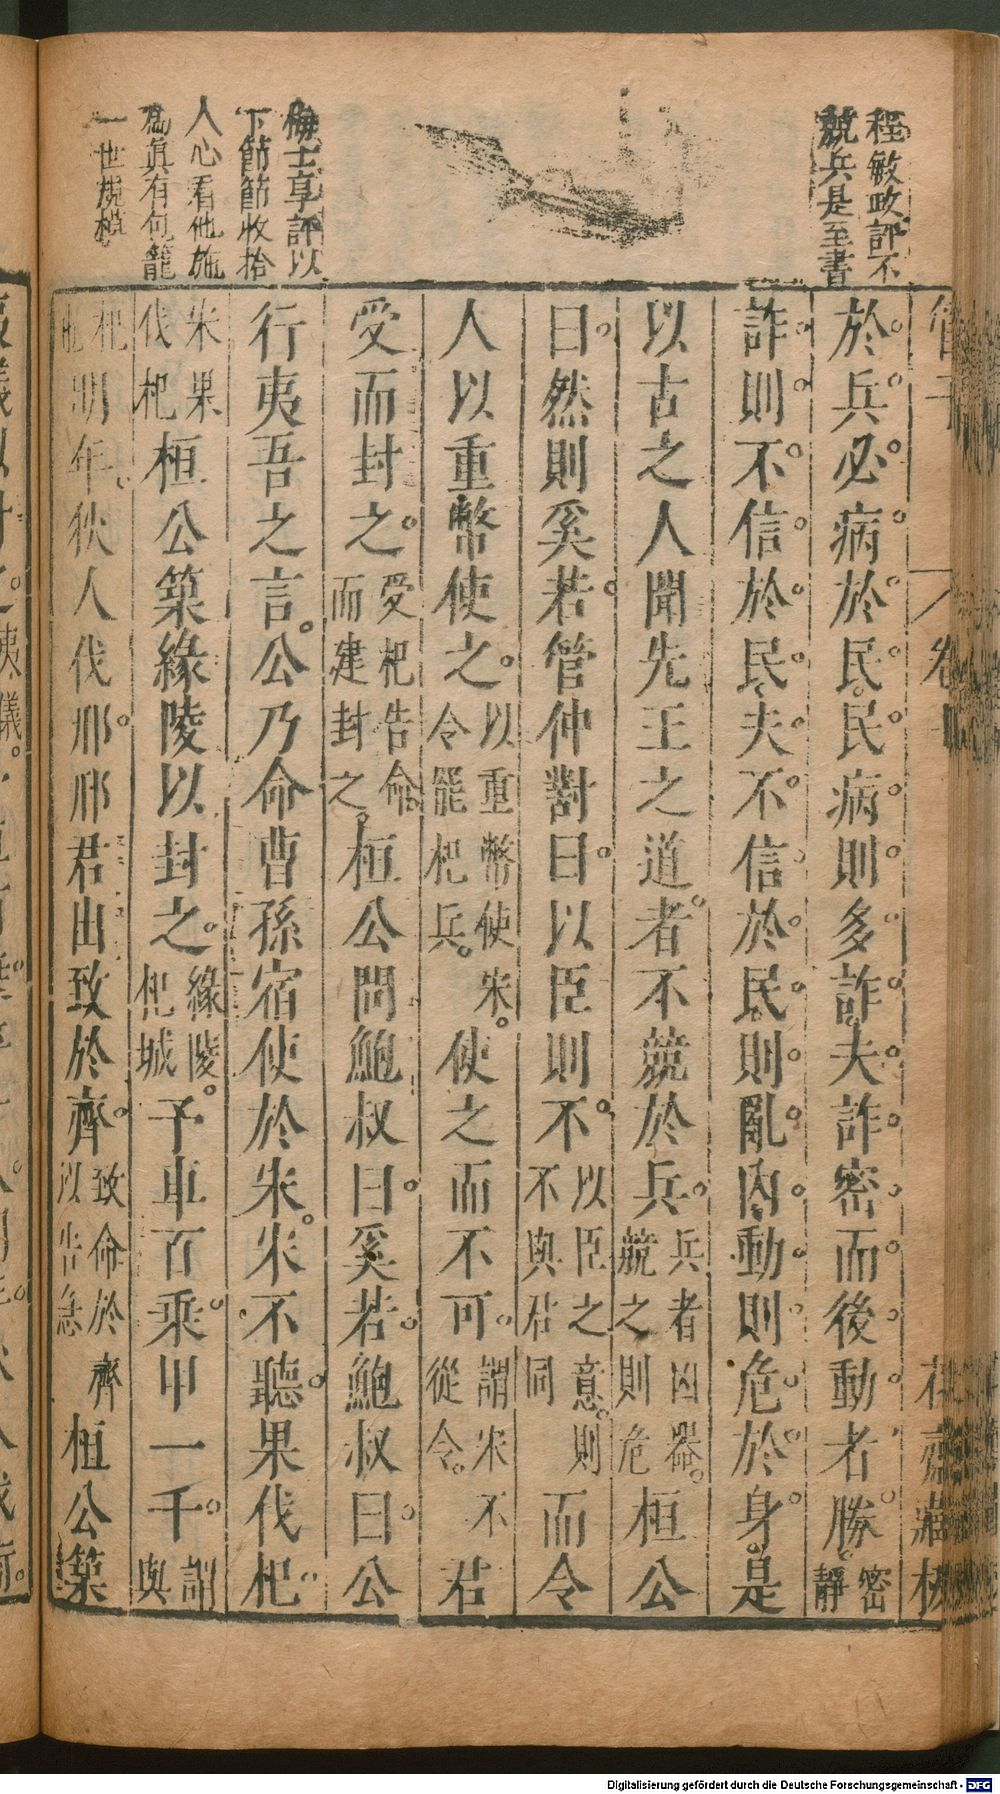 程敏政評不
競兵是至書
梅士享評以
下節節收拾
人心看他施
爲眞有包籠
一世規模
管子
卷
花齋藏板
於兵必病於民民病則多詐夫詐密而後動者勝密靜
詐則不信於民夫不信於民則亂內動則危於身是
以古之人聞先王之道者不競於兵兵者凶器競之則危桓公
曰然則奚若管仲對曰以臣則不以臣之意則不與君同而令
人以重幣使之以重幣使宋令罷杞兵使之而不可謂宋不從令君
受而封之受杞告命而建封之桓公問鮑叔曰奚若鮑叔曰公
行夷吾之言公乃命曹孫宿使於宋宋不聽果伐杞
宋果伐杞桓公築緣陵以封之緣陵杞城予車百乘甲一千謂與
杞明年狄人伐邢邢君出致於齊致命於齊以告急桓公築
Digitalisierung gefördert durch die Deutsche Forschungsgemeinschaft - DFG